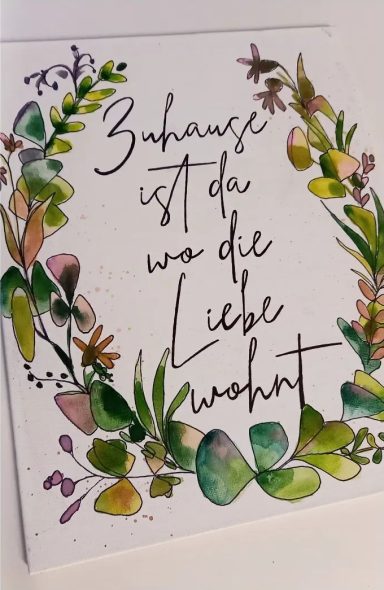 Zuhause
ist da
wo die
Liebe
wohnt